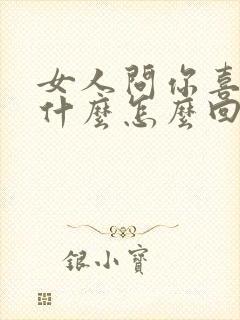 女人問你喜
什麼怎麼回
銀小寶